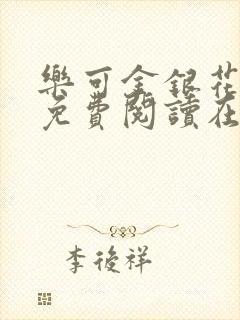 樂可金銀花
免費閱讀在
李後祥